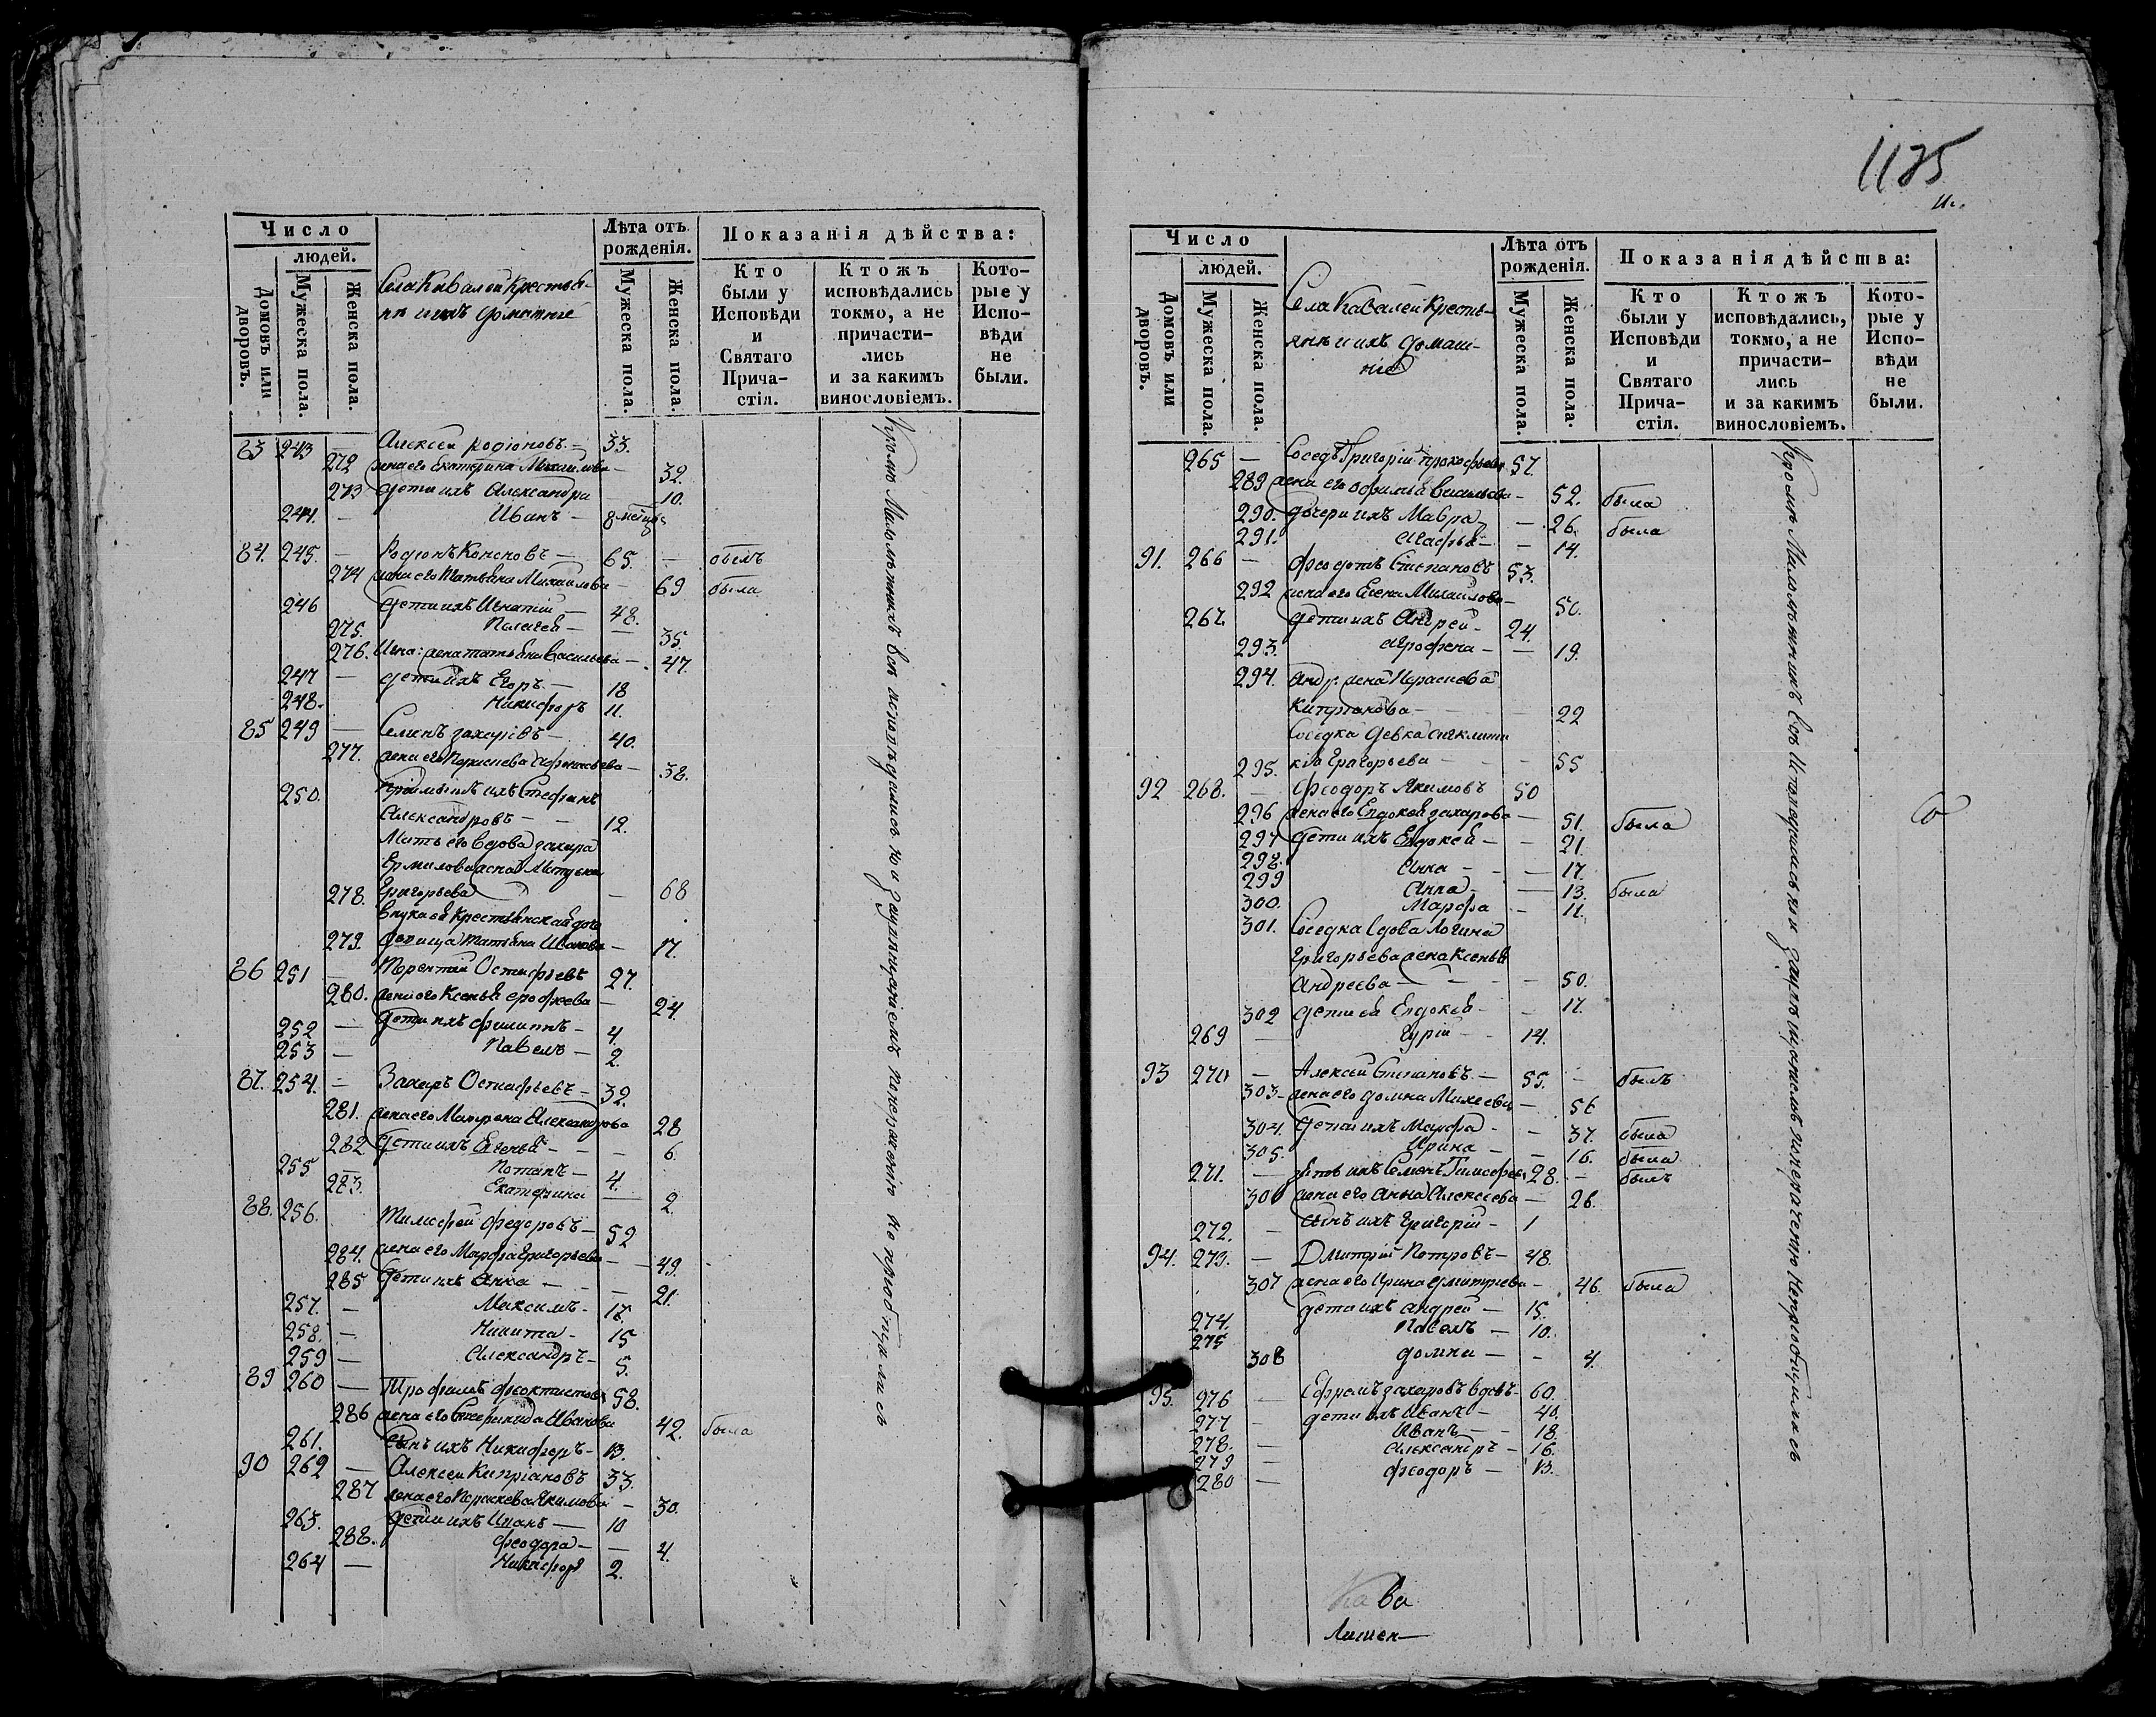 Число
людей.
Домовъ или дворовъ.
Мужеска пола.
Женска пола.
Села Кавалей Крестья-
не и ихъ домашніе
Лѣта отъ рожденія.
Мужеска пола.
Женска пола.
Показанія дѣйства:
Кто были у Исповѣди и Святаго Прича- стія.
Ктожъ исповѣдались токмо, а не причасти- лись и за какимъ винословіемъ.
Кото- рые у Испо- вѣди не были.
83 243 — Алексей Родіоновъ — 33.
272 жена его Екатерина Михаилова — 32.
273 дети ихъ Александра — 10.
244. — Иванъ — 8 месяц.
84. 245. — Родіонъ — 65. — былъ
274 жена его Татьяна Михаилова — 69 была
246 дети ихъ Игнатій — 48.
275. Палагея — — 35.
276. Игна: жена татьяна Васильева — 47.
247 — дети ихъ Егоръ — 18
248. Никифоръ 11.
85 249 — Семенъ Захаровъ — 40.
277. жена его Параскева Афонасьева — 38.
250. ихъ Стефанъ
Александровъ — — 12.
Мать его вдова Захара
Ермилова жена
278. Григорьева — 68
внука ея крестьянская
279. девица Татьяна Иванова — 17.
86 251 — Терентій Остафьевъ 27.
280. жена его Ксенья Ерофеева — 24.
252 — дети ихъ Филиппъ — 4.
253 — Павелъ — 2.
87. 254. — Захаръ Остафьевъ — 32.
281. жена его Матрена Александрова 28
282 дети ихъ Евгенья — — 6.
255 — Потапъ — 4.
283. Екатерина — 2.
88. 256. Тимофей Федоровъ — 52
284. жена его Марфа Григорьева — 49.
285 дети ихъ Анна — — 21.
257. — Максимъ — 17.
258. — Никита — 15
259 — Александръ — 5.
89 260 — Трофимъ Феоктистовъ 58.
286 жена его Степанида Иванова 42. была
261. сынъ ихъ Никифоръ — 13.
90 262 — Алексей Кипріановъ 33.
287 жена его Параскева Якимова — 30.
263. дети ихъ Иванъ — 10
288. Феодора — — 4.
264 — Никифоръ 2.
Кроме Малолетнихъ все исповедались но за по нерачению не приобщались
1125
Число
людей.
Домовъ или дворовъ.
Мужеска пола.
Женска пола.
Села Кавалей Кресть-
яне и ихъ домаш-
ніе
Лѣта отъ рожденія.
Мужеска пола.
Женска пола.
Показанія дѣйства:
Кто были у Исповѣди и Святаго Прича- стія.
Ктожъ исповѣдались, токмо, а не причасти- лись и за какимъ винословіемъ.
Кото- рые у Испо- вѣди не были.
265 — Соседъ Григорій Прокофьевъ 57.
289 жена его Офимья Васильева — 52. была
290. дочери ихъ Мавра — — 26. была
291. Агафья — — 14.
91. 266 — Феодотъ Степановъ 53.
292 жена его Елена Михаилова — 50.
267. дети ихъ Андрей — 24.
293. Агрофена — — 19.
294. Андр. жена Параскева
Кипріанова — — 22
Соседка девка
295. Григорьева — — 55
92 268. — Феодоръ Якимовъ 50
296 жена его Евдокея Захарова — 51. была
297 дети ихъ Евдокея — — 21.
298. Анна — — 17.
299 Анна — — 13. была
300. Марфа — 11.
301. Соседка вдова Логина
Григорьева жена Ксенья
Андреева — — 50.
302 дети ея Евдокея — — 17.
269 — Гурій — 14.
93 270 — Алексей Степановъ — 55. — былъ
303 — жена его Домна Михеева — 56
304. дети ихъ Марфа — — 37. была
305. Ирина — — 16. была
271. — зять ихъ Семенъ Тимофеевъ 28. — былъ
306 жена его Анна Алексеева — 26.
272. — сынъ ихъ Григорій — 1
94. 273. — Дмитрій Петровъ — 48.
307 жена его Ирина Дмитриева — 46. была
274. дети ихъ Андрей — 15.
275 Павелъ — 10.
308 Домна — — 4.
95. 276 — Ефремъ Захаровъ вдовъ — 60.
277 — дети ихъ Иванъ — 40.
278. — Иванъ — 18.
279 — Александръ — 16.
280 — Феодоръ — 13.
Кроме Малолетнихъ все исповедались но за по нерачению не приобщились